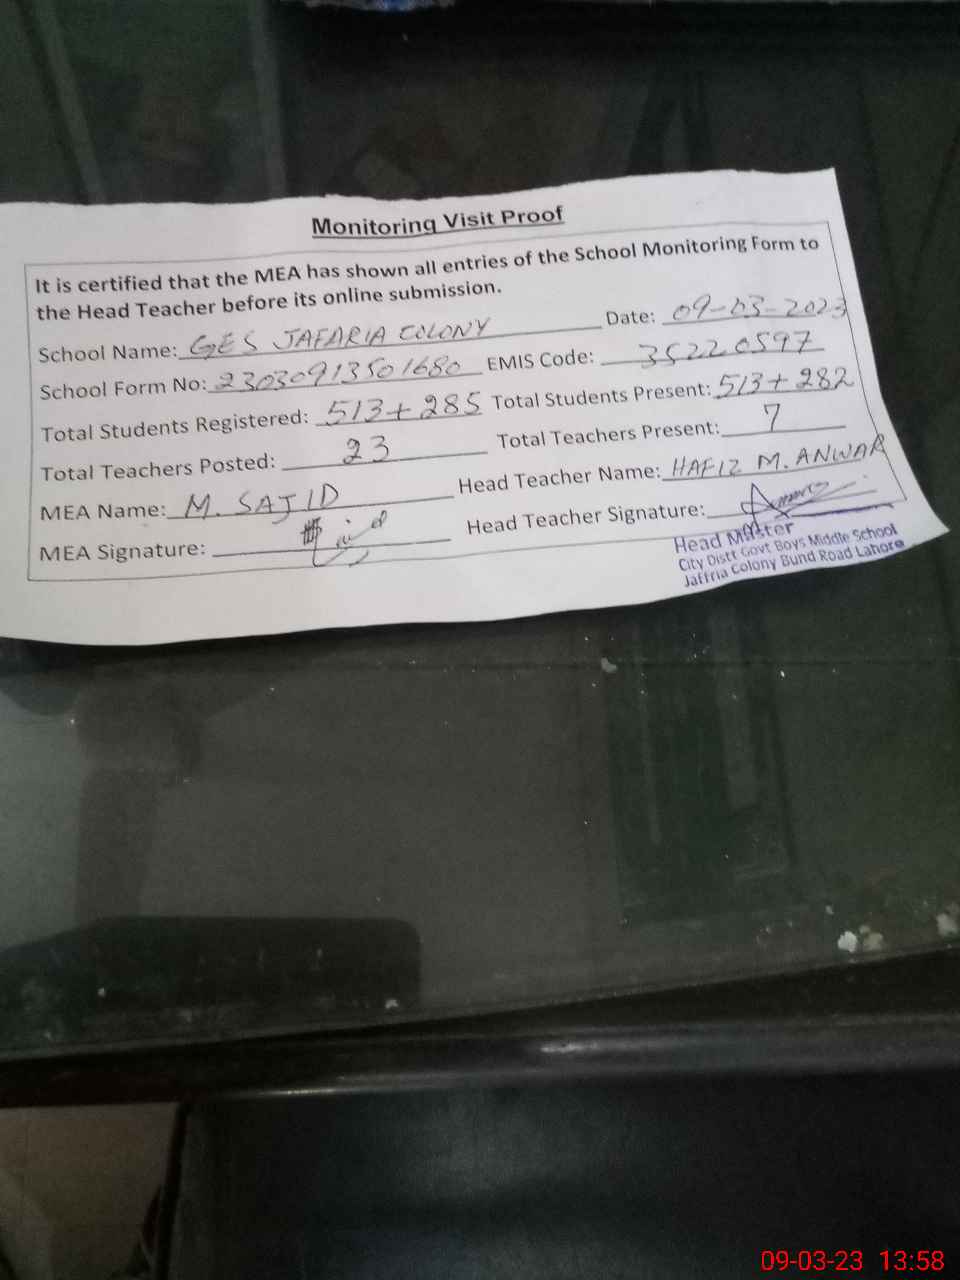 Monitoring Visit Proof
It is certified that the MEA has shown all entries of the School Monitoring Form to
the Head Teacher before its online submission.
School Name: GES JAFARIA COLONY Date: 09-03-2023
School Form No: 23030913501680 EMIS Code: 35220597
Total Students Registered: 513+285 Total Students Present: 513+282
Total Teachers Posted: 23 Total Teachers Present: 7
MEA Name: M. SAJID Head Teacher Name: HAFIZ M. ANWAR
MEA Signature: Head Teacher Signature:
Head Master
City Distt Govt Boys Middle School
Jaffria Colony Bund Road Lahore
09-03-23 13:58